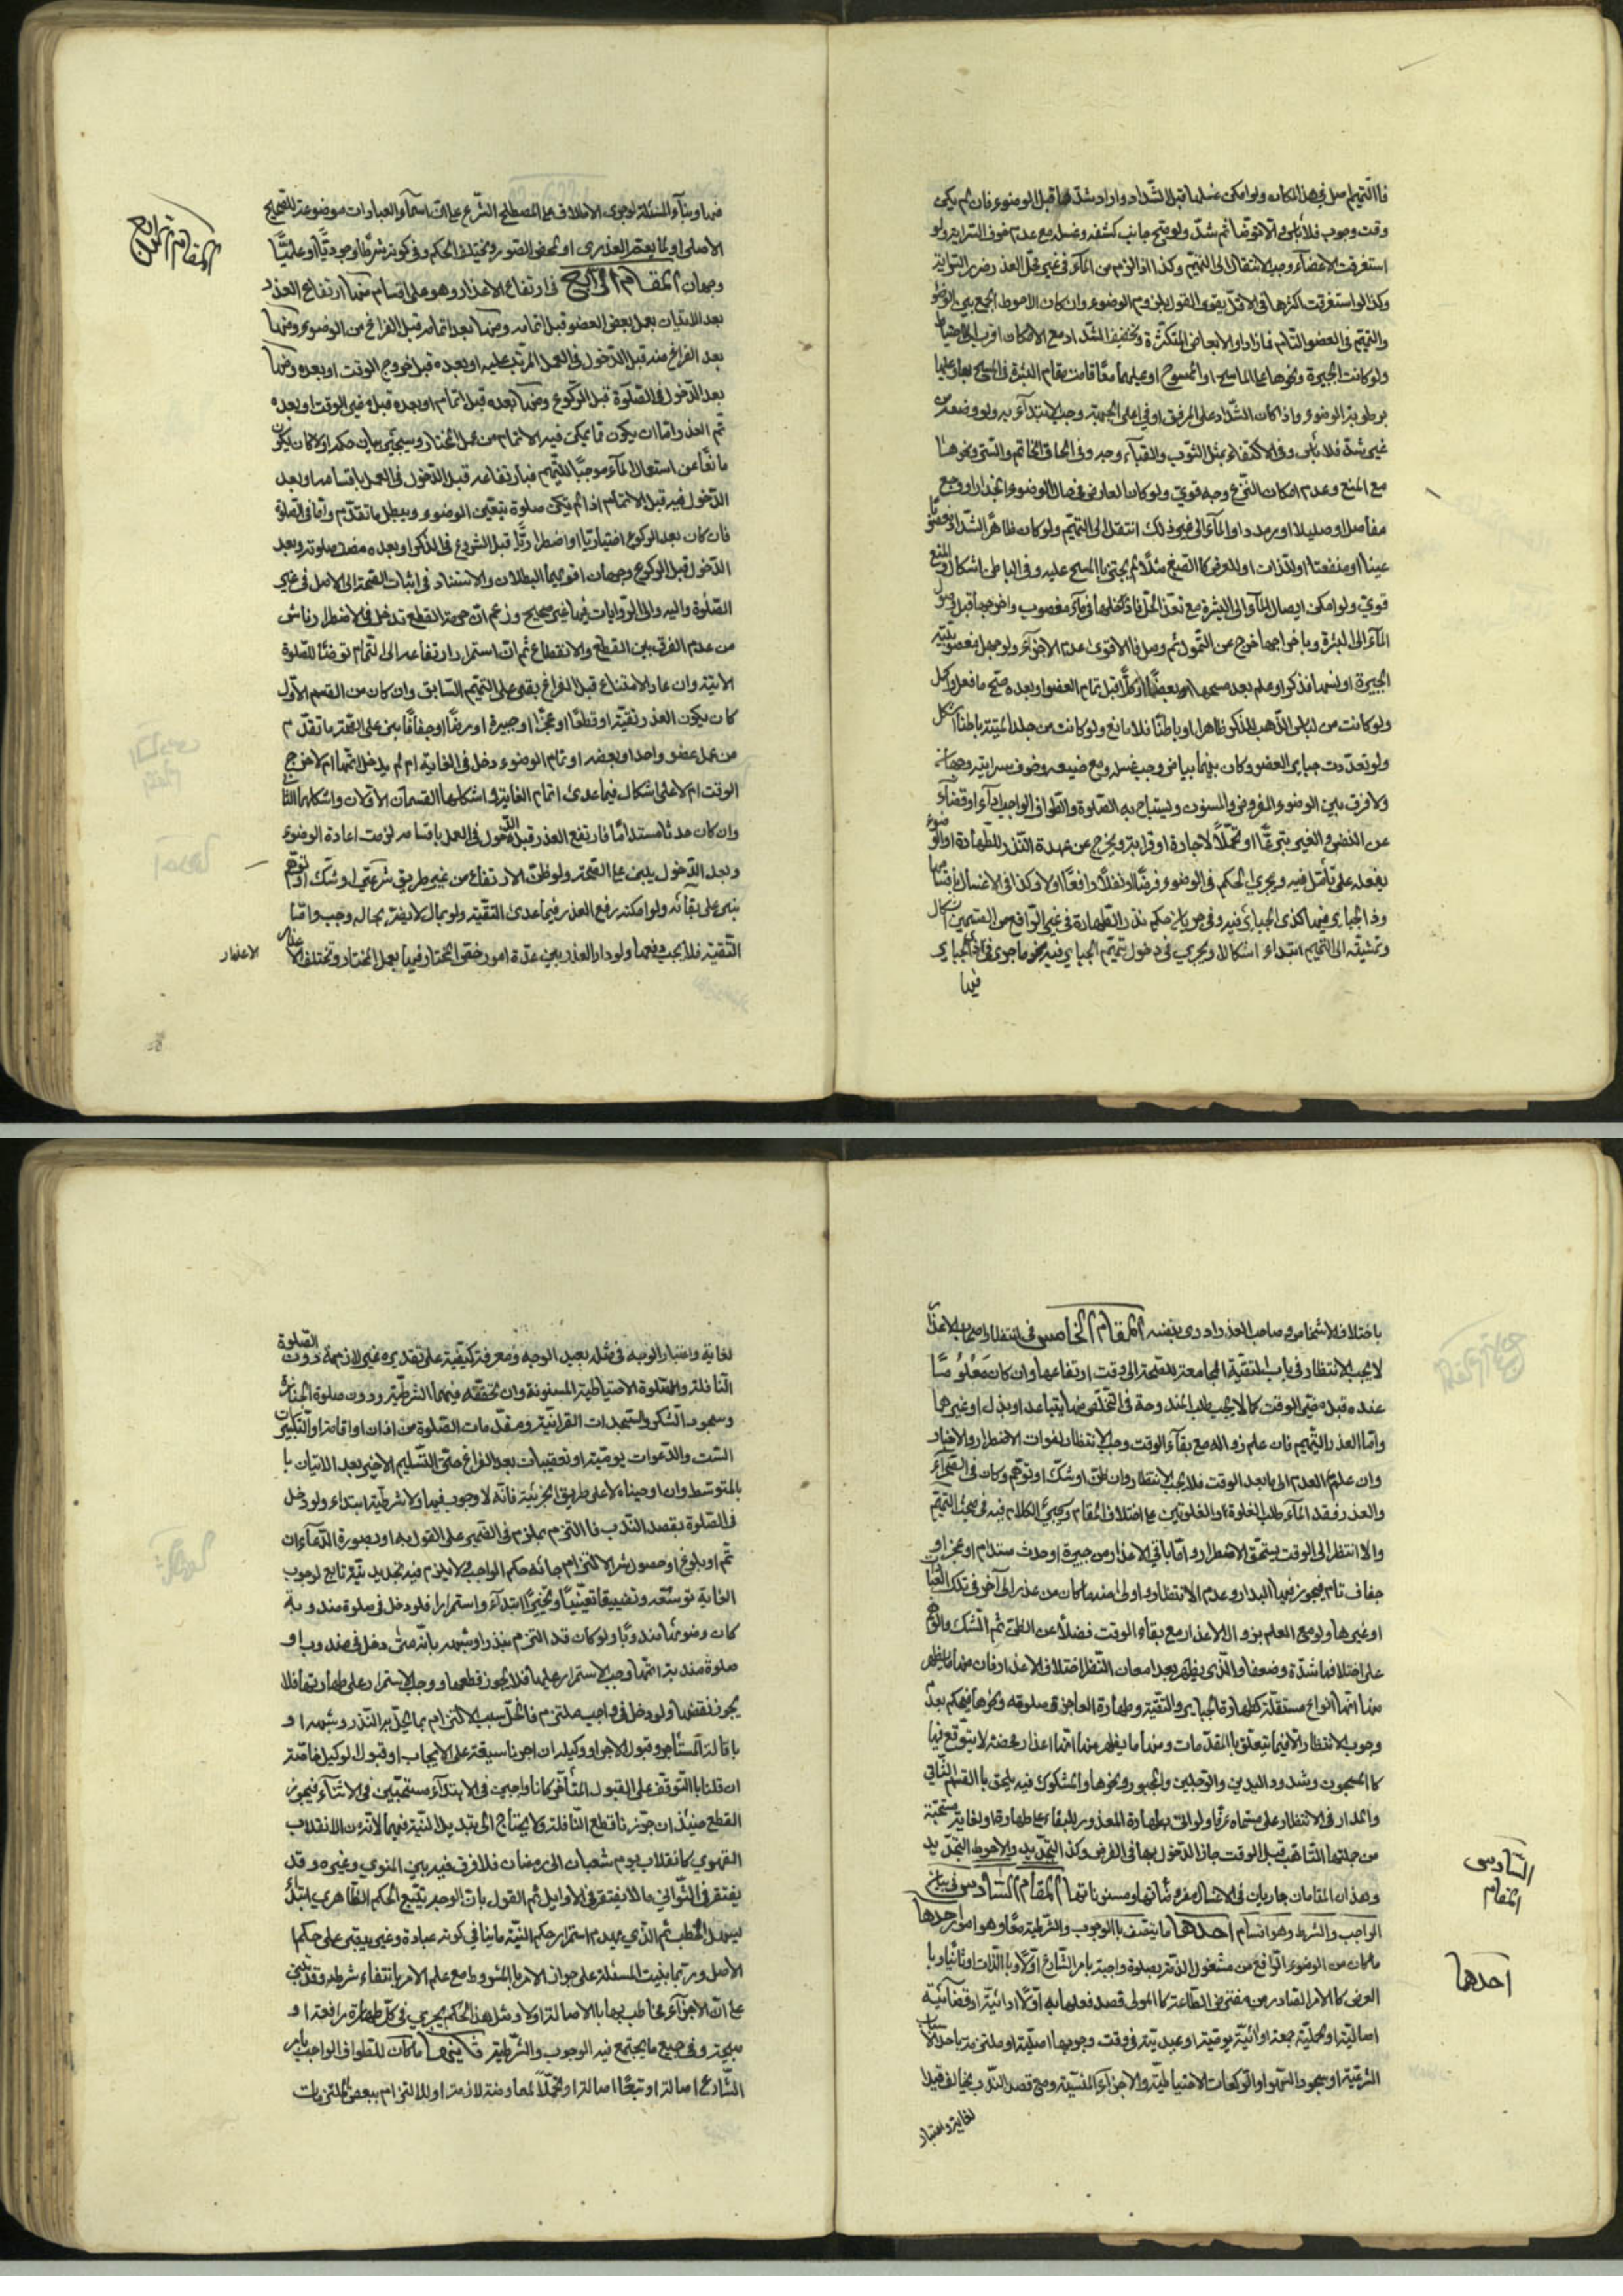 فالتيمم اصل في هذا المكان ولو امكن غسلها قبل الشداد واراد شدها قبل الوضوء فان لم يكن
وقت وجوب فلا باس والا توضا ثم شد ولو صح جانب كشفه وغسله مع عدم خوف السراية ولو
استغرقت الاعضاء وجب الانتقال الى التيمم وكذا اذا لزم من الماء في غير محل العذر ضرر السراية
وكذا لو استغرقت اكثرها في الاقل يقوى القول بلزوم الوضوء وان كان الاحوط الجمع بين الوضوء
والتيمم في العضو التام فما زاد او الابعاض المتكثرة وتخفيف الشداد مع الامكان اقرب الى الاحتياط
ولو كانت الجبيرة ونحوها على الماسح او الممسوح او عليهما معا قامت مقام البشرة في المسح بها وعليها
برطوبة الوضوء واذا كان الشداد على المرفق او في اعلى الجبهة وجب الابتداء به ولو وضعه من
غير شد فلا باس وفي الاكتفاء بمثل الثوب والقباء وجه وفي الحاق الخاتم والستر ونحوها
مع المنع وعدم امكان النزع وجه قوي ولو كان العارض في حال الوضوء انجذار او وجع
مفاصل او صليلا او رمد او الماء الى غير ذلك انتقل الى التيمم ولو كان ظاهر الشداد مغصوبا
عينا او منفعة او للذات او للعرض كالصبغ مثلا لم يجتز بالمسح عليه وفي الباطن اشكال والمنع
قوي ولو امكن ايصال الماء الى البشرة مع تعذر الحل فادخلها في ماء مغصوب واخرجها قبل وصول
الماء الى البشرة وباخراجها خرج عن التمول ثم وصل فالاقوى عدم الاجزاء ولو جهل مغصوبية
الجبيرة او نسيها فذكر او علم بعد مسحها او بعضها او كلا قبل تمام العضو او بعده صح ما فعل واكمل
ولو كانت من لباس الذهب للذكر ظاهرا او باطنا فلا مانع ولو كانت من جلد الميتة باطنا اشكل
ولو تعددت جباير العضو وكان بينها بياض وجب غسله ومع ضيقه وخوف سرايته وجهان
ولا فرق بين الوضوء المفروض والمسنون ويستباح به الصلوة والطواف الواجب اداء او قضاء
عن النفس والغير تبرعا او تحملا لاجارة او قرابة ويخرج عن عهدة النذر للطهارة او الوضوء
بفعله على تامل فيه ويجري الحكم في الوضوء فرضا او نفلا رافعا او لا وكذا في الاغسال باقسامها
وذا الجباير فيها كذي الجباير فيه وفي جريان حكم نذر الطهارة في غير الرافع من القسمين اشكال
وتمشيته الى التيمم ابتداء اشكال ويجري في دخول تيمم الجباير فيه نحو ما جرى في الجباير
فيها
فيها وبناء المسئلة لوجوب الاطلاق على المصطلح الشرع على ان اسماء العبادات موضوعة للصحيح
الاصلي او لما يعم العذري او لمحض الصور ويختلف الحكم وفي كونه شرطا وجوديا او علميا
وجهان المقام الرابع في ارتفاع الاعذار وهو على اقسام منها ارتفاع العذر
بعد الاتيان بعمل بعض العضو قبل اتمامه ومنها بعد اتمامه قبل الفراغ من الوضوء ومنها
بعد الفراغ منه قبل الدخول في العمل المرتب عليه او بعده قبل خروج الوقت او بعده ومنها
بعد الدخول في الصلوة قبل الركوع ومنها بعده قبل اتمام او بعده قبل مضي الوقت او بعده
ثم العذر اما ان يكون مما يمكن فيه الاتمام من عمل المختار وسيجئ بيان حكمه او لا كان يكون
مانعا عن استعمال الماء موجبا للتيمم فبارتفاعه قبل الدخول في العمل باقسامه او بعد
الدخول فيه قبل الاتمام اذا لم يكن صلوة يتعين الوضوء ويبطل ما تقدم واما في الصلوة
فان كان بعد الركوع اختياريا او اضطراريا قبل الشروع في الذكر او بعده مضت صلوته وبعد
الدخول قبل الركوع وجهان اقويهما البطلان والاستناد في اثبات الصحة الى الاصل في غير
الصلوة واليه والى الروايات فيها غير صحيح وزعم ان حرمة القطع تدخل في الاضطرار ناش
من عدم الفرق بين القطع والانقطاع ثم ان استمر ارتفاعه الى التمام توضا للصلوة
الاتية وان عاد الامتناع قبل الفراغ بقي على التيمم السابق وان كان من القسم الاول
كان يكون العذر تقية او قطعا او عجزا او جبيرة او مرضا او جفافا بنى على الصحة ما تقدم
من عمل عضو واحد او بعضه او تمام الوضوء دخل في الغاية ام لم يدخل اتمها ام لا خرج
الوقت ام لا على اشكال فيما عدى اتمام الغاية واشكلها القسمان الاولان واشكلهما الثاني
وان كان حدثا مستداما فارتفع العذر قبل الدخول في العمل باقسامه لزمت اعادة الوضوء
وبعد الدخول يبنى على الصحة ولو ظن الارتفاع من غير طريق شرعي او شك او توهم
بنى على بقائه ولو امكنه رفع العذر فيما عدى التقية ولو بمال لا يضر بحاله وجب واما
التقية فلا يجب دفعها ولو دار العذر بين عدة امور خص المختار فيها بعمل المختار وتختلف الاعذار
الاعذار
المقام الرابع
باختلاف الاشخاص وصاحب العذر ادرى بنفسه المقام الخامس في انتظار اصحاب الاعذار
لا يجب الانتظار في باب التقية المجامعة للصحة الى وقت ارتفاعها وان كان معلوما
عنده قبل مضي الوقت كما لا يجب طلب المندوحة في التخلص منها بتباعد او بذل او غيرهما
واما العذر التيمم فان علم زواله مع بقاء الوقت وجب الانتظار لفوات الاضطرار والاخبار
وان علم العدم الى ما بعد الوقت فلا يجب الانتظار وان ظن او شك او توهم وكان في الصحراء
والعذر فقد الماء طلب الغلوة او الغلوتين على اختلاف المقام وسيجئ الكلام فيه في مبحث التيمم
والا انتظر الى الوقت يتحقق الاضطرار واما باقي الاعذار من جبيرة او حدث مستدام او عجز او
جفاف تام فيجوز فيها البدار وعدم الانتظار واولى منه ما كان من عذر الى آخر في تلك الغايات
او غيرها ولو مع العلم بزوال الاعذار مع بقاء الوقت فضلا عن الظن ثم الشك والوهم
على اختلافها شدة وضعفا والذي يظهر بعد امعان النظر اختلاف الاعذار فان منها ما يظهر
منها انها انواع مستقلة كطهارة الجباير والتقية وطهارة العاجز وصلوته ونحوها فيحكم بعدم
وجوب الانتظار الا فيما يتعلق بالمقدمات ومنها ما يظهر منها انها اعذار محضة لا يتوقع فيها
كالمسجون وشدود اليدين والرجلين والمجبور ونحوها والمشكوك فيه يلحق بالقسم الثاني
والمدار في الانتظار على مسماه عرفا ولو اتى بطهارة المعذور للبقاء على طهارة او لغاية مستحبة
من جملتها التاهب قبل الوقت جاز الدخول بها في الفرض وكذا التجديد والاحوط التجديد
وهذان المقامان جاريان في الاغسال مفروضاتها ومسنوناتها المقام السادس في بيان
الواجب والشرط وهو اقسام احدها ما يتصف بالوجوب والشرطية معا وهو امور احدها
ما كان من الوضوء الرافع من مشغول الذمة بصلوة واجبة بامر الشارع اولا وبالذات او ثانيا وبا
العرض كالامر الصادر من مفترض الطاعة كالمولى قصد فعلها به اولا ادائية او قضائية
اصالية او تحملية جمعة او اتية يومية او عيدية في وقت وجوبها اصلية او ملتزمة باحد الاسباب
الشرعية او سجود السهو او الركعات الاحتياطية والاجزاء المنسية ومع قصد الندب يخالف قيدا
لغاية واعتبار
السادس
المقام
احدها
لغاية واعتبار الوجه في مثله بعيد الوجه ومعرفة كيفية على تقديره غير لازمة دون الصلوة
النافلة والصلوة الاحتياطية المسنونة وان تحققه فيهما الشرطية ودون صلوة الجنازة
وسجود الشكر والسجدات القرانية ومقدمات الصلوة من اذان او اقامة او التكبيرات
الست والدعوات يومية او تعقيبات بعد الفراغ حتى التسليم الاخير بعد الاتيان با
بالمتوسط وان اوجبناه لا على طريق الجزئية فانه لا وجوب فيها ولا شرطية ابتداء ولو دخل
في الصلوة بقصد الندب فالتزم بملزم في الضمير على القول به او بصورة الدعاء ان
تم او بلوغ او حصول شرط الالتزام جائه حكم الواجب ولا يلزم فيه تجديد نية تابع لوجوب
الغاية توسعة وتضييقا تعيينيا وتخييريا ابتداء واستمرارا فلو دخل في صلوة مندوبة
كان وضوئها مندوبا ولو كان قد التزم بنذر او شبهه بانه متى دخل في مندوب او
صلوة مندوبة اتمها وجب الاستمرار عليها فلا يجوز قطعها ووجب الاستمرار على طهارتها فلا
يجوز نقضها ولو دخل في واجب ملتزم فانحل سبب الالتزام بما ينحل به النذر وشبهه او
باقالة المستاجر وقبول الاجير او وكيله ان اجرنا سبقه على الايجاب او قبول الوكيل خاصة
ان قلنا بالتوقف على القبول المتأخر كانا واجبين في الابتداء مستحبين في الاثناء فيجوز
القطع حينئذ ان جوزنا قطع النافلة ولا يحتاج الى تبديل النية فيهما لانه من الانقلاب
القهري كانقلاب يوم شعبان الى رمضان فلا فرق فيه بين المنوي وغيره وقد
يفتقر في الثواني ما لا يفتقر في الاوايل ثم القول بان الوجه يتبع الحكم الظاهري ابتداء
يسهل الخطب ثم الذي يهدم استمرار حكم النية ما ينافي كونه عبادة وغيره يبقى على حكم
الاصل وربما بنيت المسئلة على جواز الامر بالمشروط مع علم الامر بانتفاء شرطه وقد تبنى
على ان الاجزاء مخاطب بها بالاصالة او لا ومثل هذا الحكم يجري في كل طهارة رافعة او
مبيحة وفي جميع ما يجتمع فيه الوجوب والشرطية ثانيها ما كان للطواف الواجب بامر
الشارع اصالة او تبعا اصالة او تحملا لمعاوضة لازمة او للالتزام ببعض الملتزمات